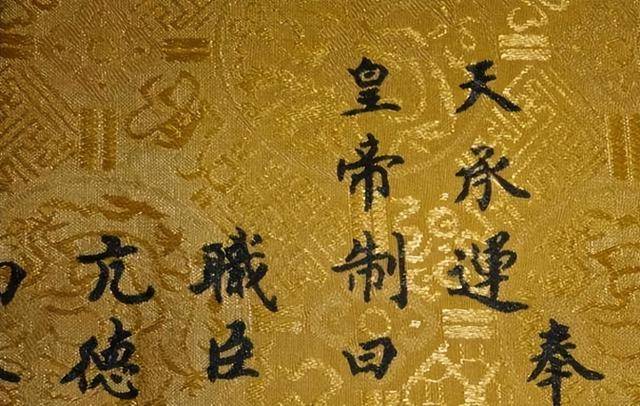 奉
天承運
皇帝制曰
職臣
亢德